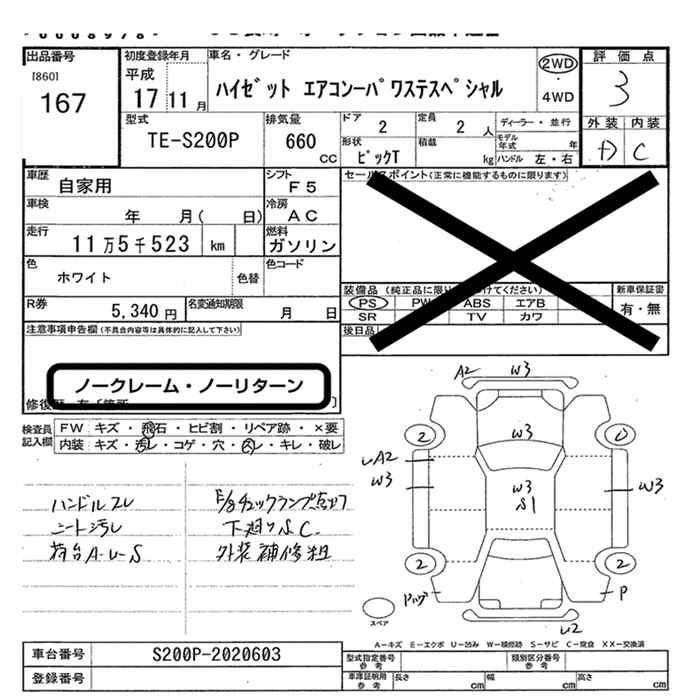 出品番号
[860]
167
初度登録年月
平成
17 11 月
車名・グレード
ハイゼット エアコンーパワステスペシャル
2WD
4WD
評価点
3
外装 内装
D C
型式
TE-S200P
排気量
660
cc
ドア
2
定員
2 人
ディーラー・並行
形状
ピックT
積載
kg
モデル
年式 年
ハンドル 左・右
車歴
自家用
シフト
F5
車検
年 月( 日)
冷房
AC
走行
11万5千523 km
燃料
ガソリン
色
ホワイト
色替
色コード
R券
5,340 円
名変通知期限
月 日
セールスポイント(正常に機能するものに限ります)
装備品(純正品に限り つけてください)
新車保証書
PS PW ABS エアB
有・無
SR TV カワ
後日品
注意事項申告欄(不具合内容等は具体的に記入して下さい)
ノークレーム・ノーリターン
検査員
記入欄
FW キズ・飛石・ヒビ割・リペア跡・×要
内装 キズ・汚レ・コゲ・穴・スレ・キレ・破レ
ハンドルスレ
シート汚レ
荷台A-U-S
E/gチェックランプ点灯
下廻りSC
外装補修粗
A2 W3
2
W3
A2
W3
W3
S1
W3
2
2
P
U2
スペア
A-キズ E-エクボ U-凹み W-補修跡 S-サビ C-腐食 XX-交換済
車台番号
S200P-2020603
登録番号
型式指定番号
参考
類別区分番号
参考
車庫証明用
参考
長さ cm
幅 cm
高さ cm